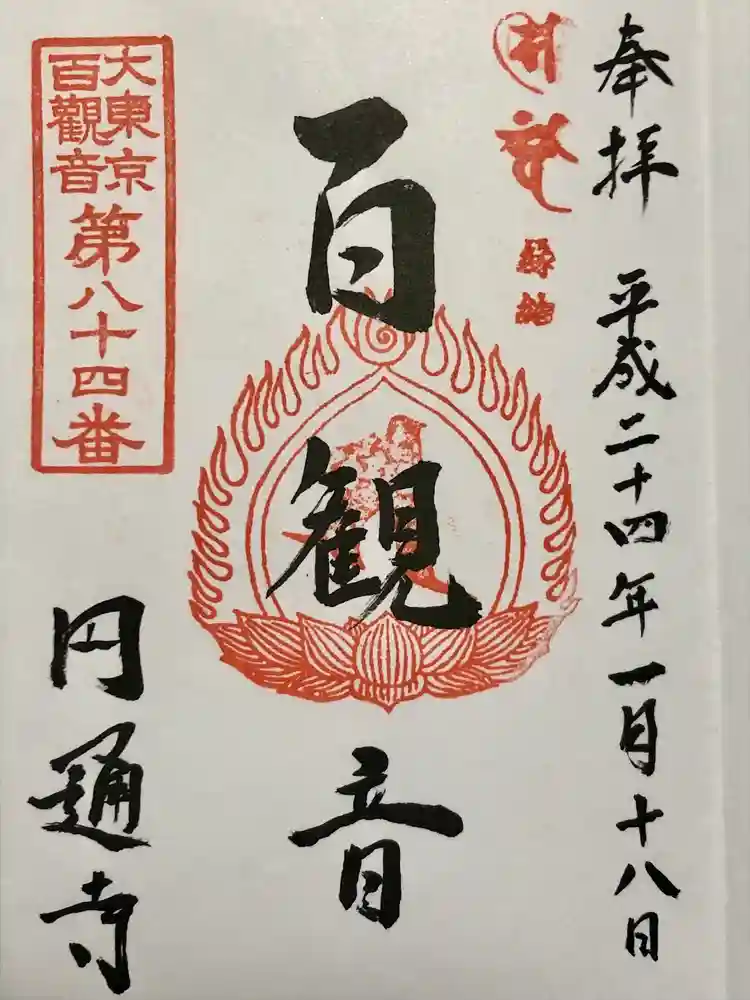 奉拝 平成二十四年一月十八日
縁結
百観音
大東京
百觀音
第八十四番
円通寺